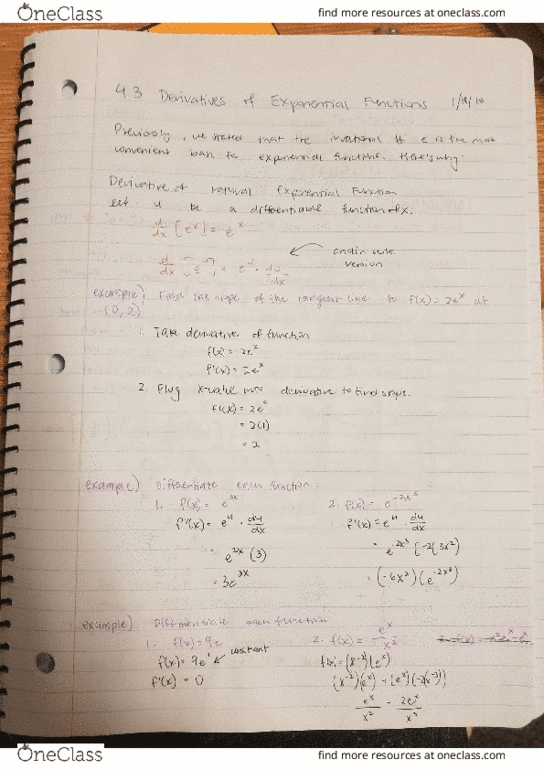 OneClass find more resources at oneclass.com
4.3 Derivatives of Exponential Functions
Previously, we stated that the irrational # e is the most
convenient base for exponential functions. Here's why
Derivative of natural Exponential Function
let u be a differentiable function of x.
d/dx [e^x] = e^x
d/dx [e^u] = e^u · du/dx
chain rule
version
example) Find the slope of the tangent line to f(x) = 2e^x at
(0,2)
1. Take derivative of function
f(x) = 2e^x
f'(x) = 2e^x
2. Plug x-value into derivative to find slope.
= 2(1)
= 2
example) Differentiate each function
1. f(x) = e^3x 2. f(x) = e^-2x^3
= e^u · du/dx = e^u · du/dx
(3) (-2(3x^2)
= 3e^3x = (-6x^2)(e^-2x^3)
example) Differentiate each function
1. f(x) = 9e 2. f(x) = e^x/x^2
constant
f'(x) = 0
(x^-2)(e^x)
e^x/x^2 - 2e^x/x^3
OneClass find more resources at oneclass.com